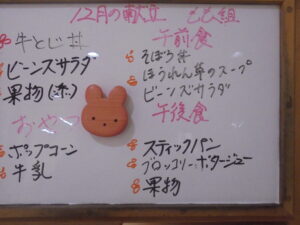 12月の献立 もも組
牛とじ丼
ビーンズサラダ
果物
おやつ
ポップコーン
牛乳
午前食
そぼろ丼
ほうれん草のスープ
ビーンズサラダ
午後食
スティックパン
ブロッコリーポタージュ
果物